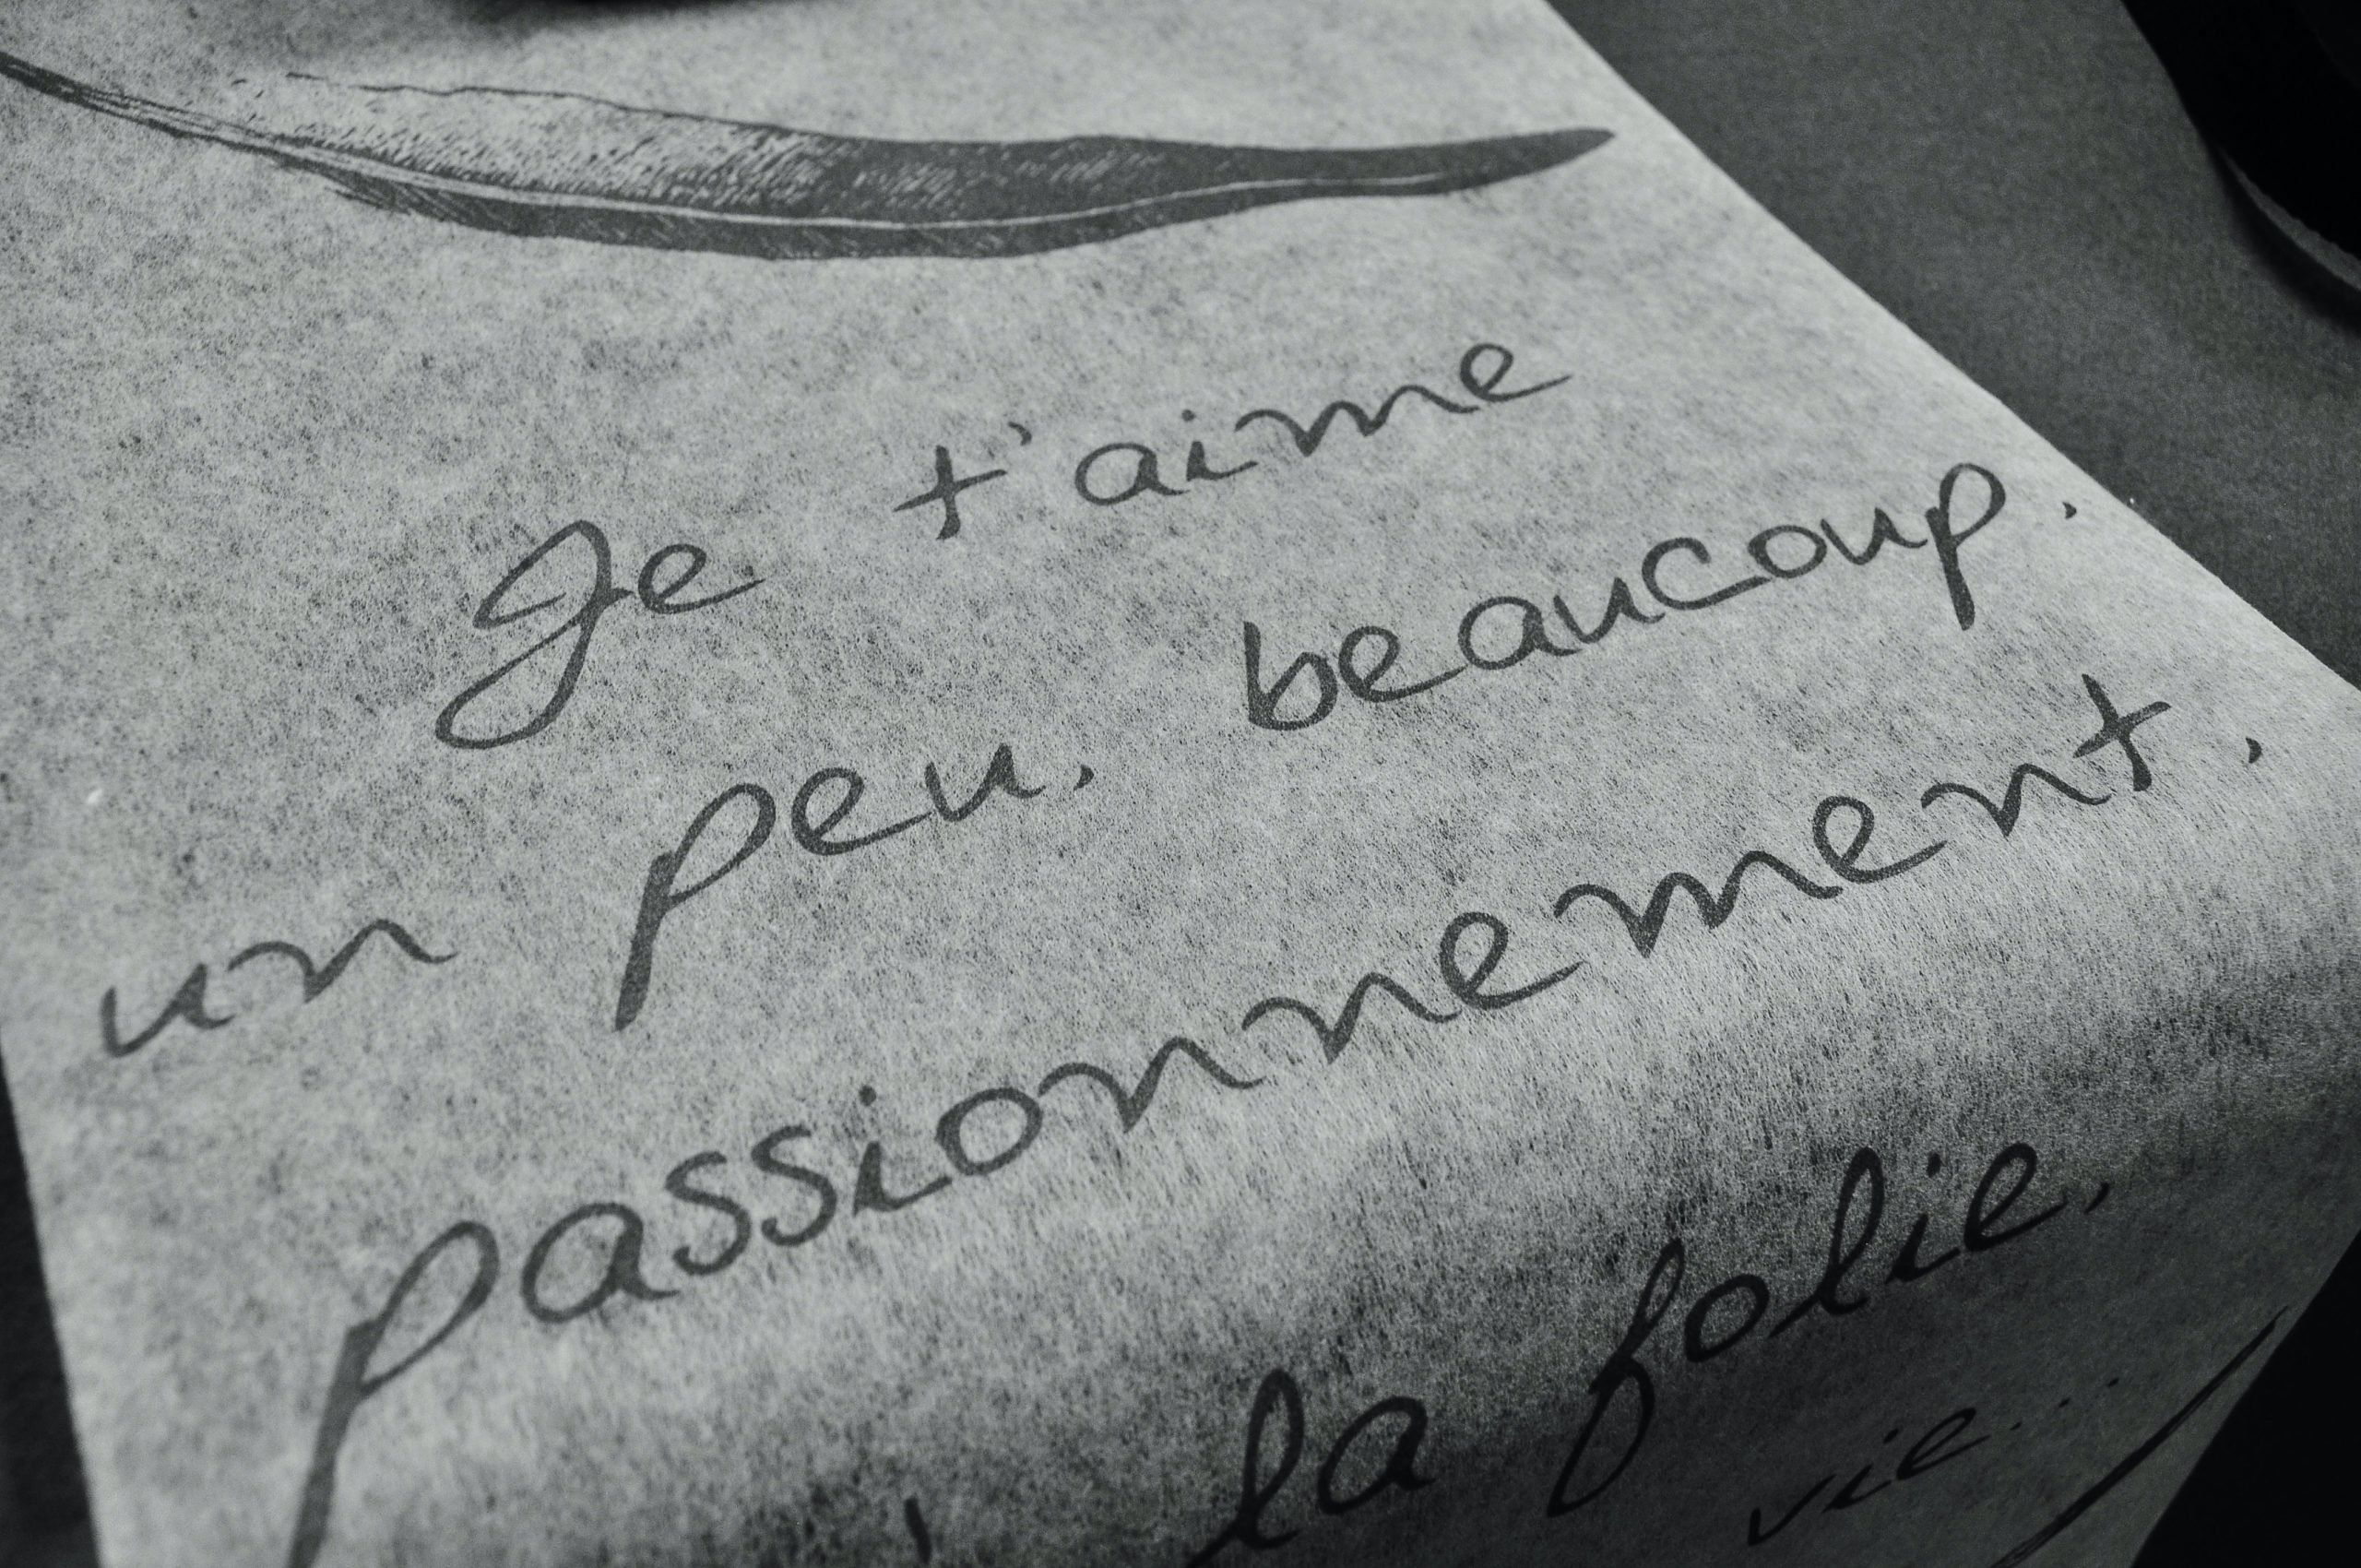 Je t'aime
un peu, beaucoup,
passionnement,
la folie,
vie...